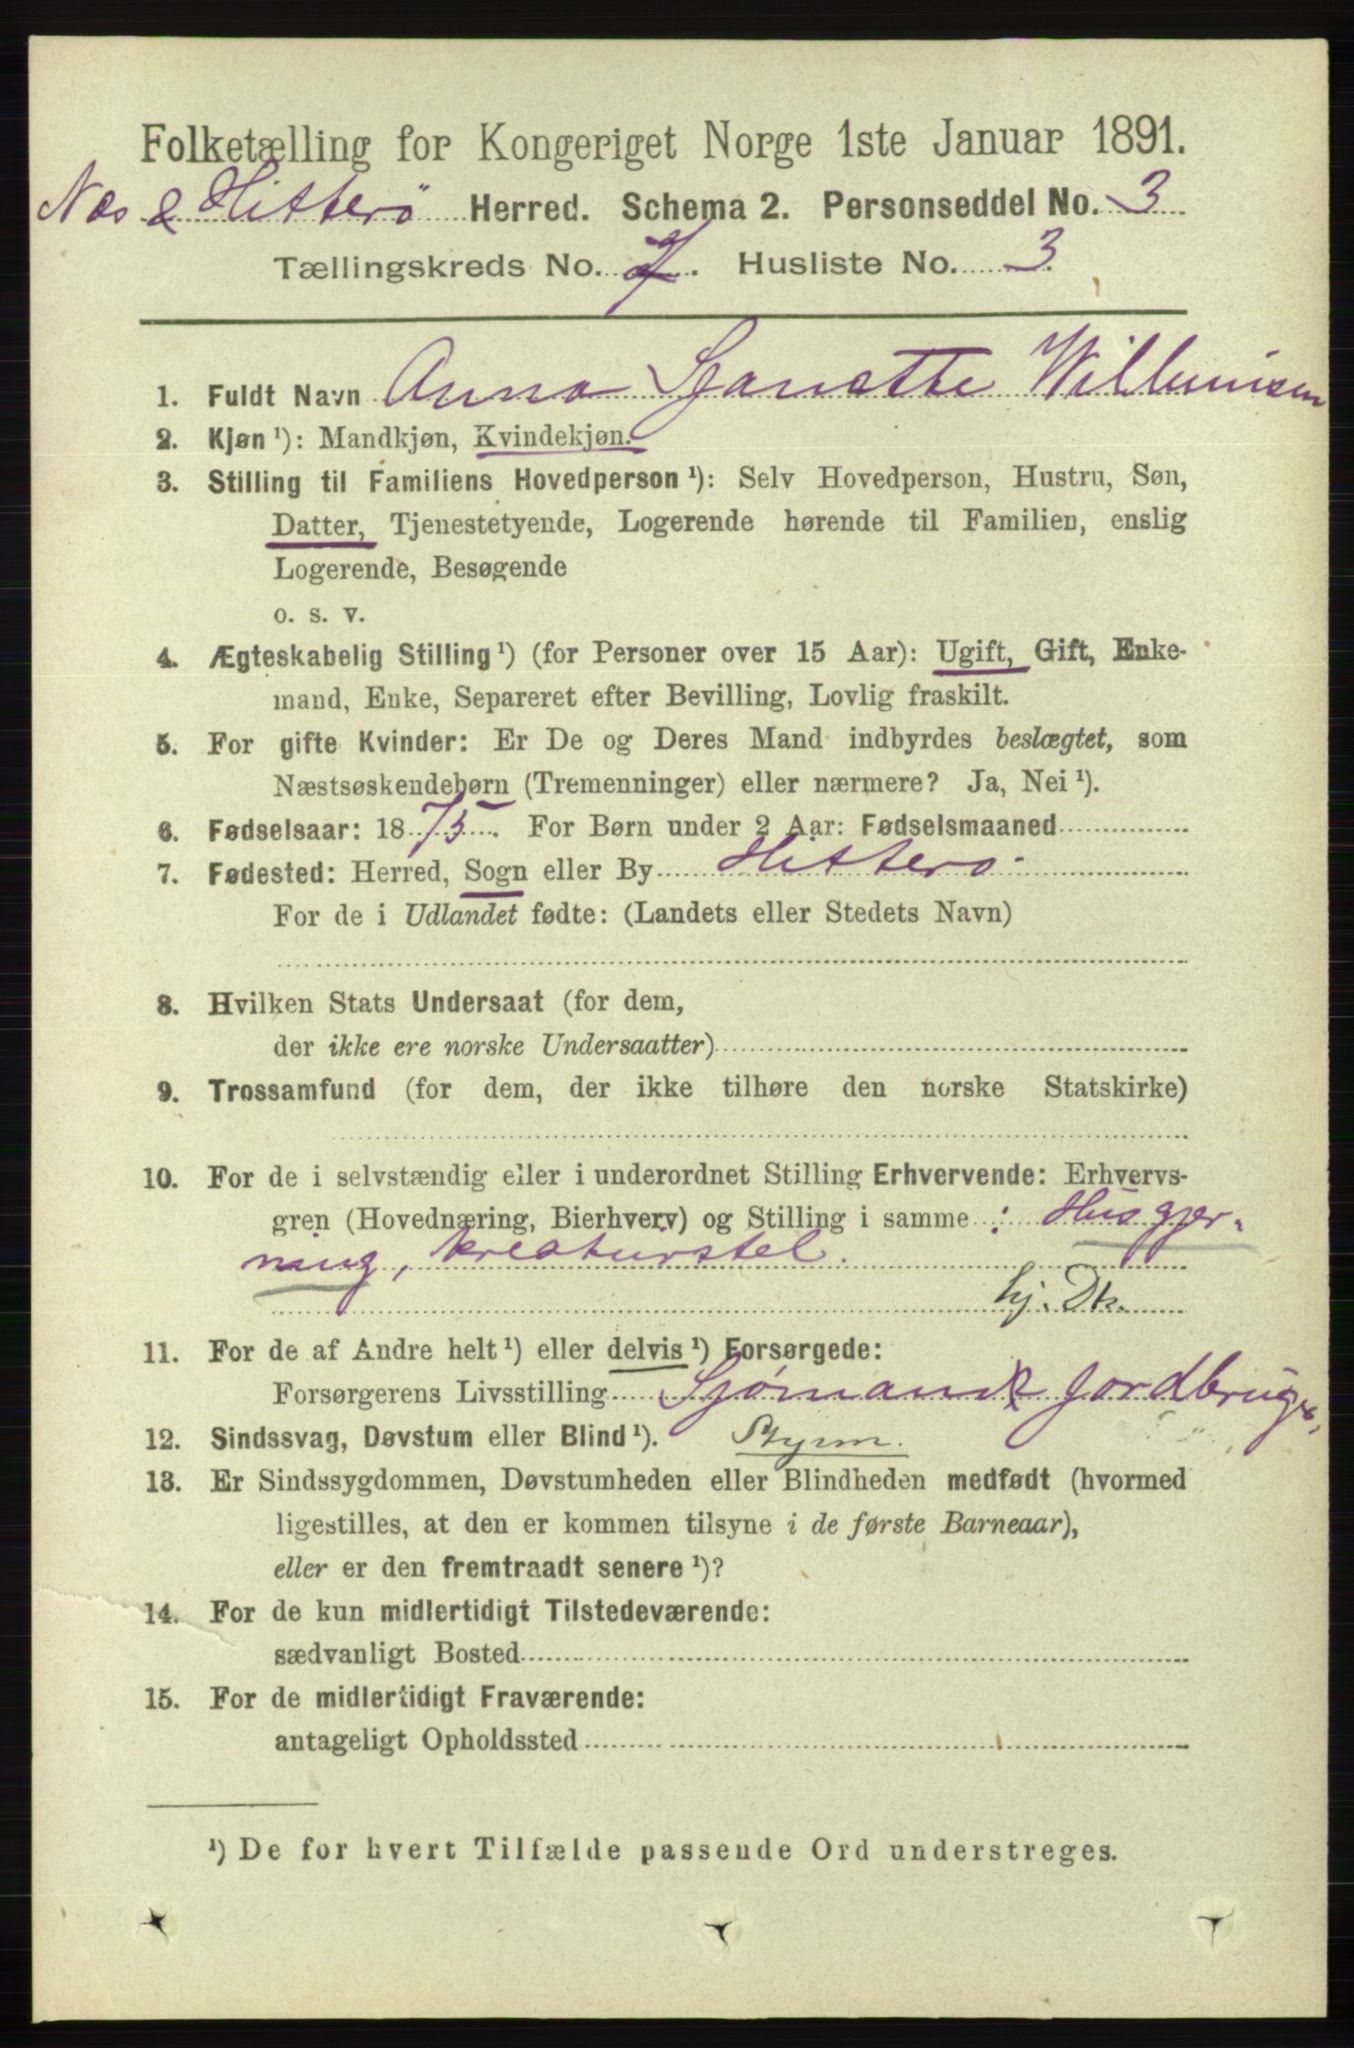 Folketælling for Kongeriget Norge 1ste Januar 1891.
Næs & Hitterø Herred. Schema 2. Personseddel No. 3
Tællingskreds No. 7. Husliste No. 3.
1. Fuldt Navn Anna Sjanette Willumsen
2. Kjøn ¹): Mandkjøn, Kvindekjøn.
3. Stilling til Familiens Hovedperson ¹): Selv Hovedperson, Hustru, Søn,
Datter, Tjenestetyende, Logerende hørende til Familien, enslig
Logerende, Besøgende
o. s. v.
4. Ægteskabelig Stilling ¹) (for Personer over 15 Aar): Ugift, Gift, Enke-
mand, Enke, Separeret efter Bevilling, Lovlig fraskilt.
5. For gifte Kvinder: Er De og Deres Mand indbyrdes beslægtet, som
Næstsøskendebørn (Tremenninger) eller nærmere? Ja, Nei ¹).
6. Fødselsaar: 1875. For Børn under 2 Aar: Fødselsmaaned
7. Fødested: Herred, Sogn eller By Hitterø
For de i Udlandet fødte: (Landets eller Stedets Navn)
8. Hvilken Stats Undersaat (for dem,
der ikke ere norske Undersaatter)
9. Trossamfund (for dem, der ikke tilhøre den norske Statskirke)
10. For de i selvstændig eller i underordnet Stilling Erhvervende: Erhvervs-
gren (Hovednæring, Bierhverv) og Stilling i samme : Husgjer-
ning, kreaturstel.
hj. Dtr.
11. For de af Andre helt ¹) eller delvis ¹) Forsørgede:
Forsørgerens Livsstilling Sjømand & Jordbruger,
12. Sindssvag, Døvstum eller Blind ¹). Styrm.
13. Er Sindssygdommen, Døvstumheden eller Blindheden medfødt (hvormed
ligestilles, at den er kommen tilsyne i de første Barneaar),
eller er den fremtraadt senere ¹)?
14. For de kun midlertidigt Tilstedeværende:
sædvanligt Bosted
15. For de midlertidigt Fraværende:
antageligt Opholdssted
¹) De for hvert Tilfælde passende Ord understreges.